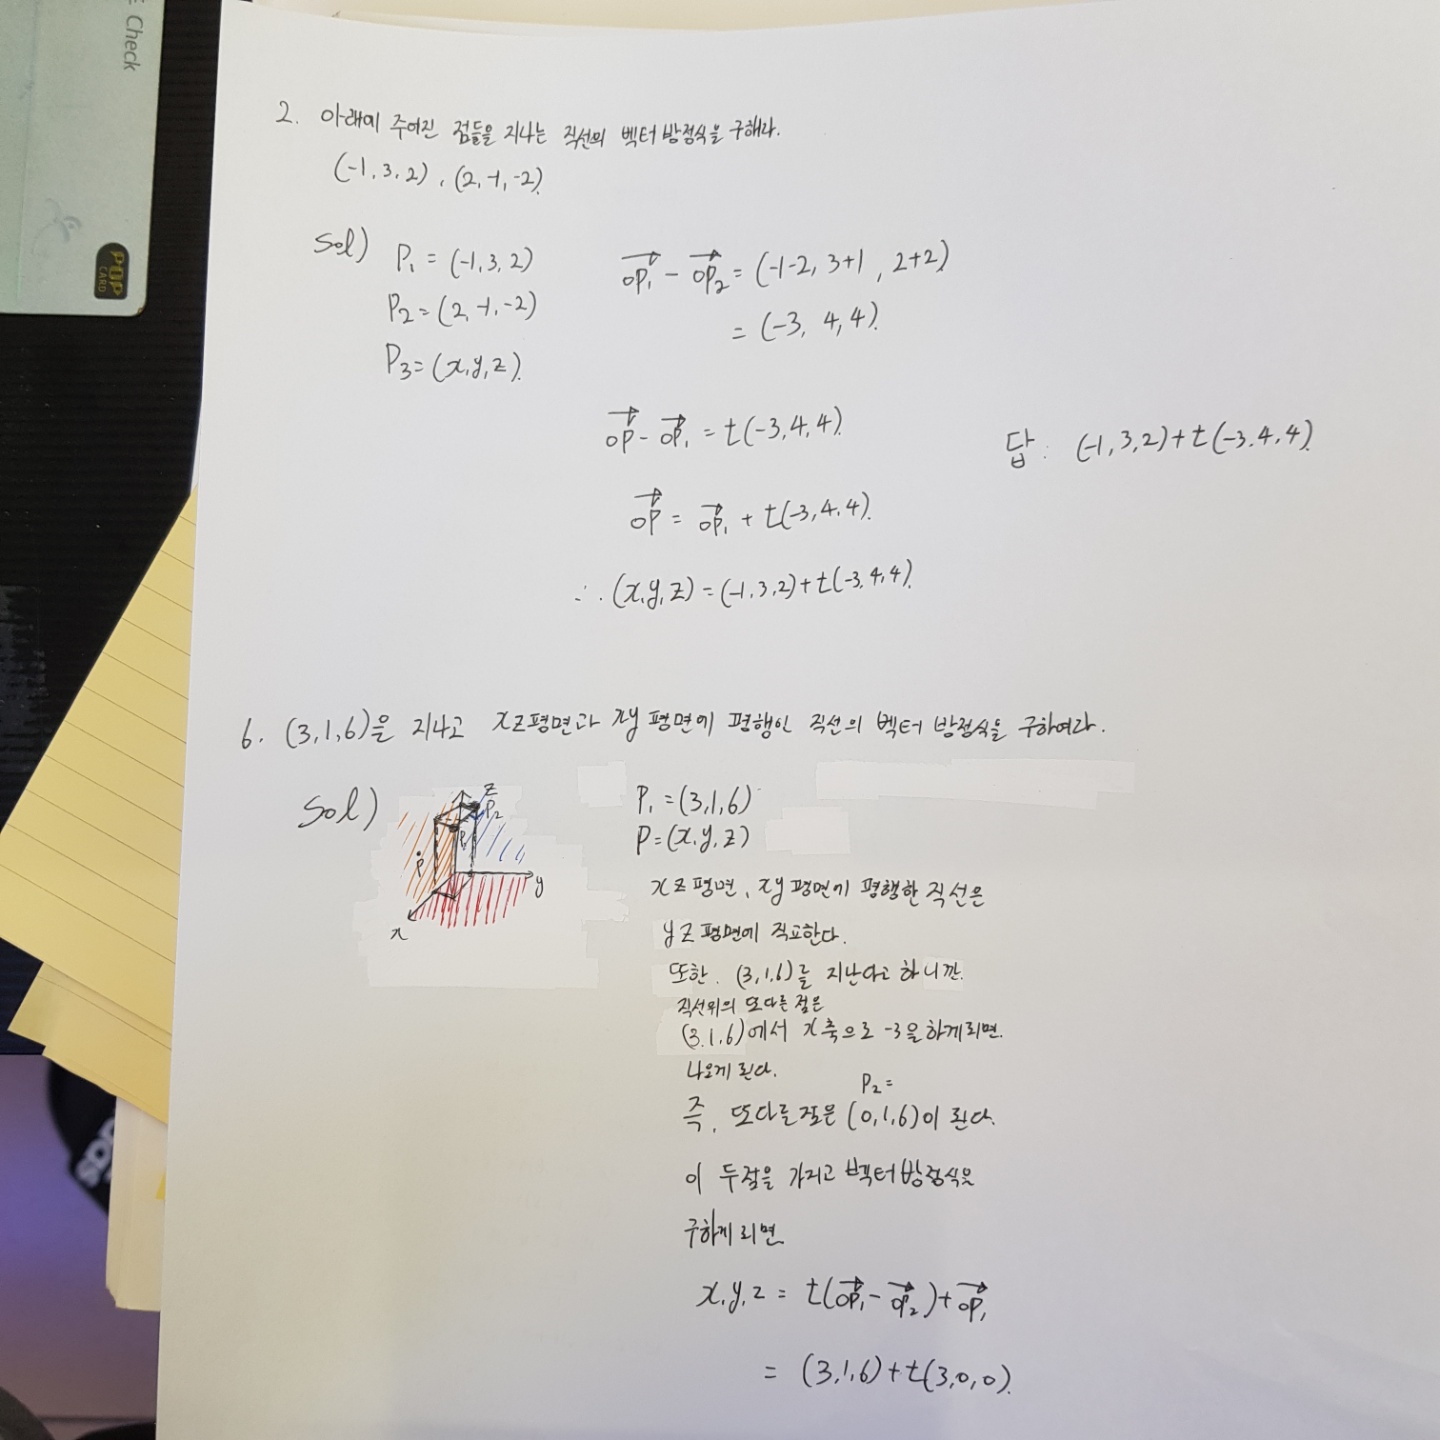 Check
POP
CARD
2. 아래에 주어진 점들을 지나는 직선의 벡터 방정식을 구해라.
(-1, 3, 2), (2, -1, -2).
Sol) P₁ = (-1, 3, 2)
P₂ = (2, -1, -2)
P₃ = (x, y, z).
OP₁ - OP₂ = (-1-2, 3+1, 2+2)
= (-3, 4, 4).
OP - OP₁ = t(-3, 4, 4).
OP = OP₁ + t(-3, 4, 4).
∴ (x, y, z) = (-1, 3, 2) + t(-3, 4, 4).
답 : (-1, 3, 2) + t(-3, 4, 4).
6. (3, 1, 6)을 지나고 xz평면과 xy평면에 평행인 직선의 벡터 방정식을 구하여라.
Sol)
z
P₂
P₁
P
y
x
P₁ = (3, 1, 6)
P = (x, y, z)
xz평면, xy평면에 평행한 직선은
yz평면에 직교한다.
또한. (3, 1, 6)를 지난다고 하니깐.
직선위의 또다른 점은
(3, 1, 6)에서 x축으로 -3을 하게되면.
나오게 된다.
P₂ =
즉, 또다른점은 (0, 1, 6)이 된다.
이 두점을 가지고 벡터방정식을
구하게되면.
x, y, z = t(OP₁ - OP₂) + OP₁
= (3, 1, 6) + t(3, 0, 0).